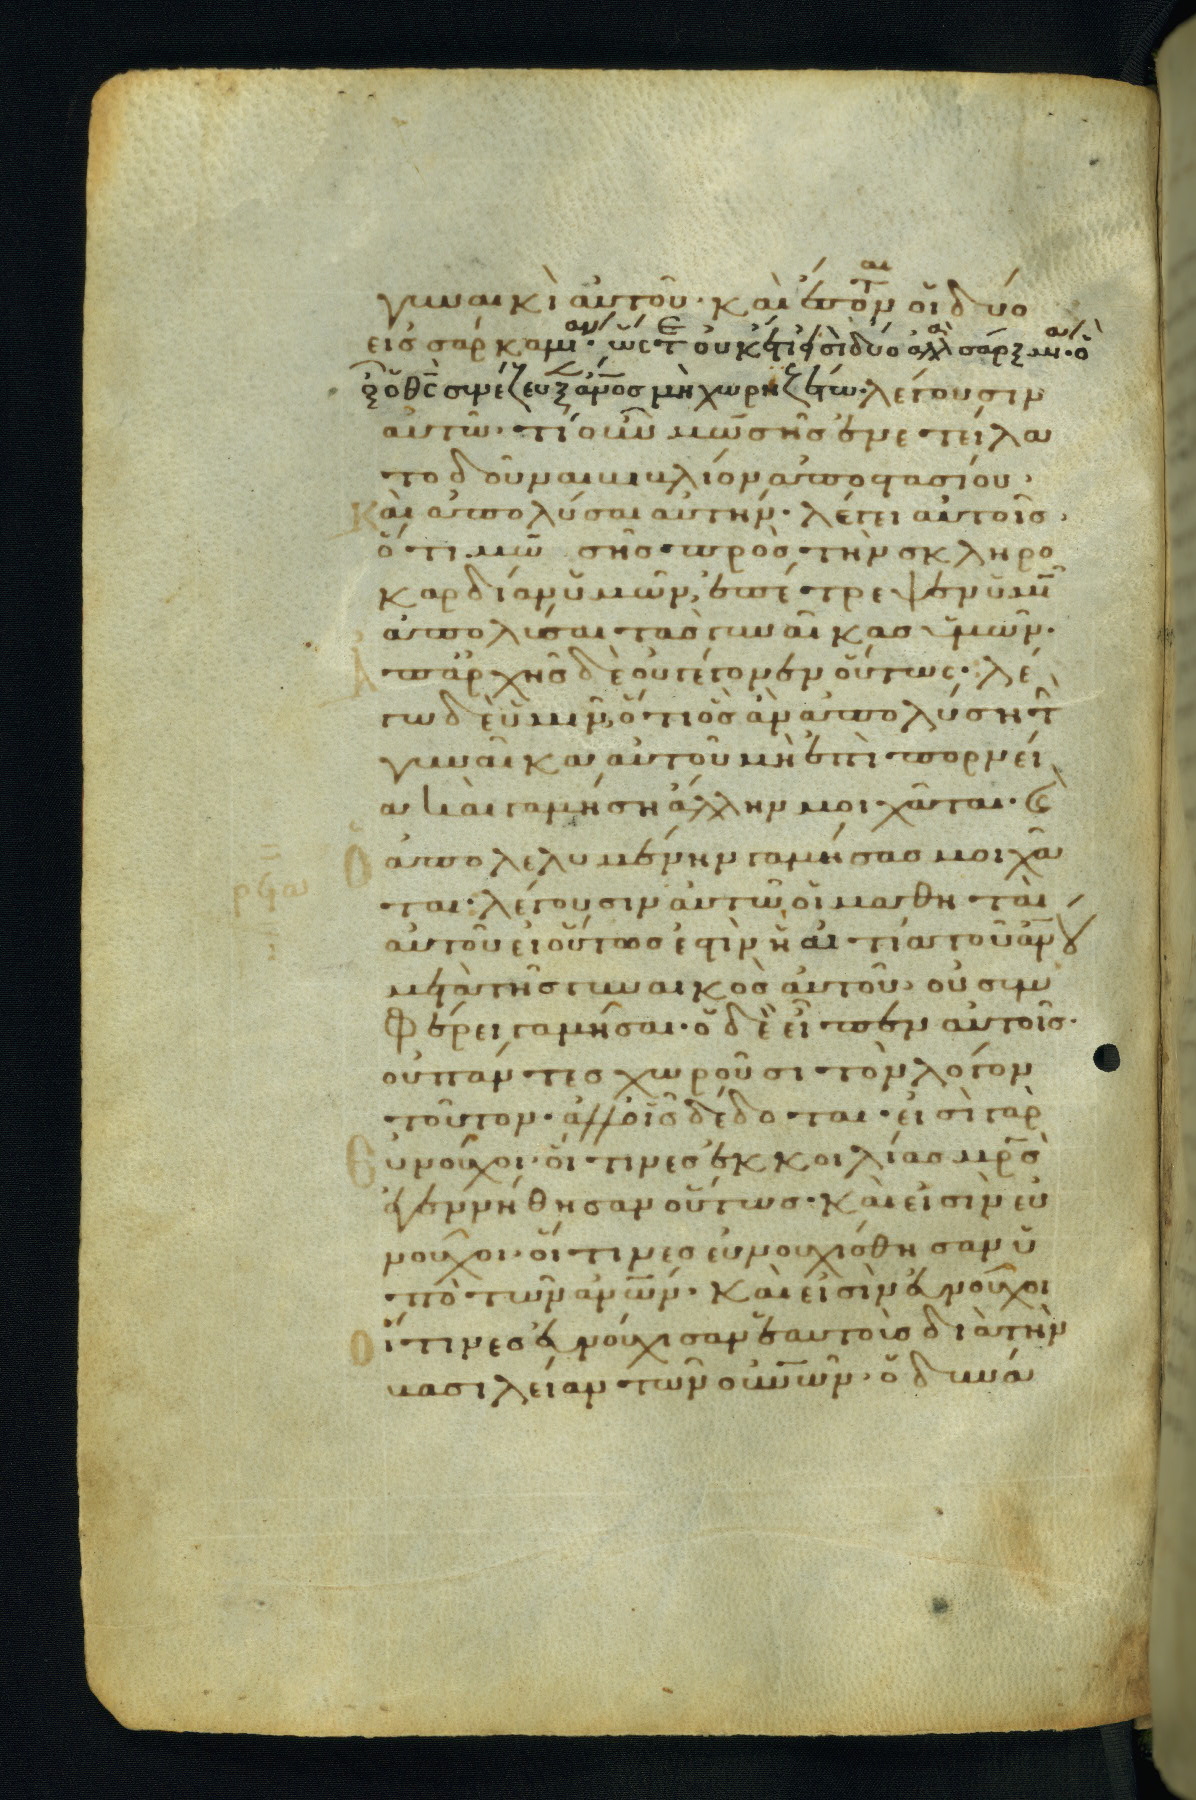 γυναικὶ αὐτοῦ· καὶ ἔσονται οἱ δύο
εἰς σάρκα μίαν· ὥστε οὐκέτι εἰσὶ δύο ἀλλὰ σὰρξ μία· ὃ
οὖν ὁ θς συνέζευξεν ἄνος μὴ χωριζέτω· λέγουσιν
αὐτῶ· τί οὖν μωσῆς ἐνετείλα
το δοῦναι βιβλίον ἀποστασίου·
καὶ ἀπολύσαι αὐτήν· λέγει αὐτοῖς·
ὅτι μωσῆς πρὸς τὴν σκληρο
καρδίαν ὑμῶν, ἐπέτρεψεν ὑμῖν
ἀπολύσαι τὰς γυναῖκας ὑμῶν·
ἀπἀρχῆς δὲ οὐ γέγονεν οὕτως· λέ
γω δὲ ὑμῖν, ὅτι ὃς ἂν ἀπολύση τὴν
γυναῖκα αὐτοῦ μὴ ἐπὶ πορνεί
α καὶ γαμήση ἄλλην μοιχᾶται· καὶ
ὁ ἀπολελυμένην γαμήσας μοιχᾶ
ρϟα
ται· λέγουσιν αὐτῶ οἱ μαθηταὶ
αὐτοῦ εἰ οὕτως ἐστὶν ἡ αἰτία τοῦ ἀνου
μετὰ τῆς γυναικὸς αὐτοῦ, οὐ συμ
φέρει γαμῆσαι· ὁ δὲ εἶπεν αὐτοῖς·
οὐ πάντες χωροῦσι τὸν λόγον
τοῦτον· ἀλλ οἷς δέδοται· εἰσὶ γὰρ
εὐνοῦχοι· οἵτινες ἐκ κοιλίας μρς
ἐγεννήθησαν οὕτως· καὶ εἰσὶν εὐ
νοῦχοι· οἵτινες εὐνουχίσθησαν ὑ
πὸ τῶν ἀνων· καὶ εἰσὶν εὐνοῦχοι
οἵτινες εὐνούχισαν ἑαυτοὺς διὰ τὴν
βασιλείαν τῶν οὐνων· ὁ δυνά